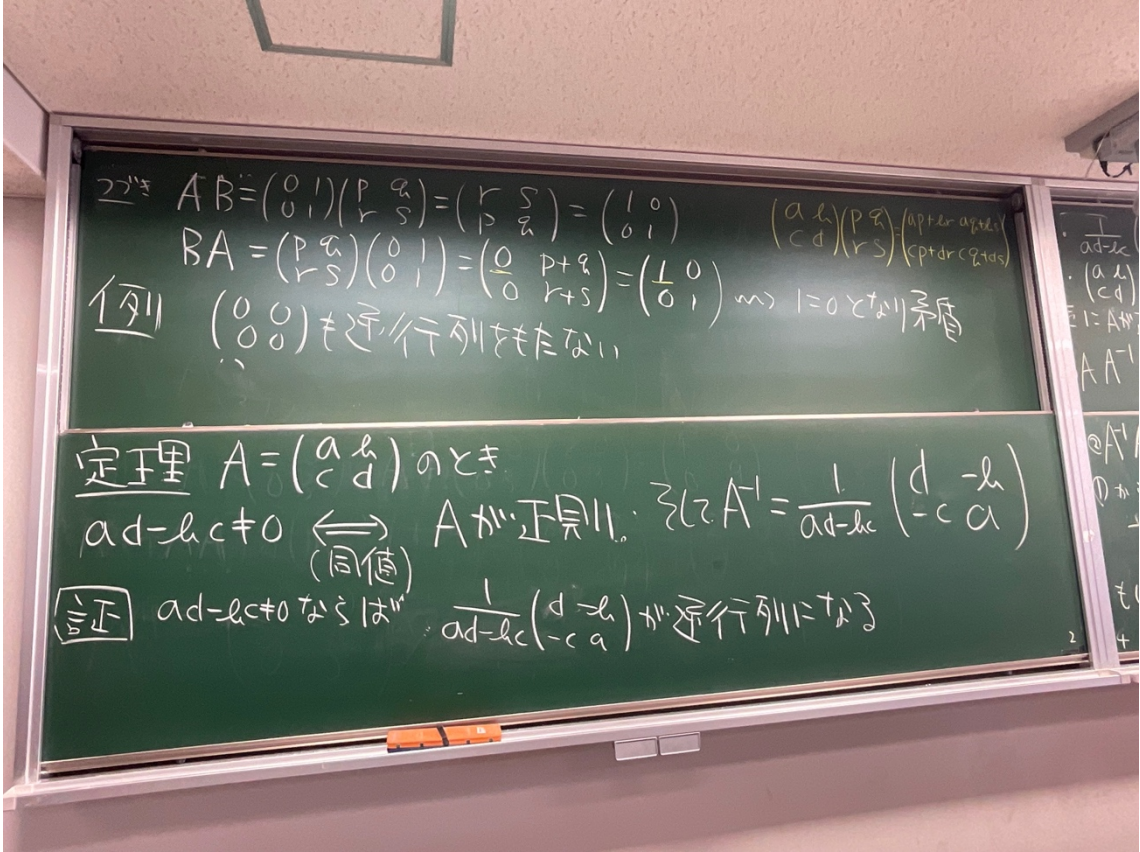 つづき AB=(0 1 0 1)(p q r s)=(r s p q)=(1 0 0 1)
(a b c d)(p q r s)=(ap+br aq+bs cp+dr cq+ds)
BA=(p q r s)(0 1 0 1)=(0 p+q 0 r+s)=(1 0 0 1) ⇝ 1=0となり矛盾
例 (0 0 0 0)も逆行列をもたない
定理 A=(a b c d)のとき
ad-bc≠0 ⟺ Aが正則. そして A⁻¹=1/(ad-bc) (d -b -c a)
(同値)
証 ad-bc≠0ならば 1/(ad-bc) (d -b -c a)が逆行列になる
2
1/(ad-bc)
(a b c d)
にAが
A A⁻¹
②A⁻¹
①か
も
4